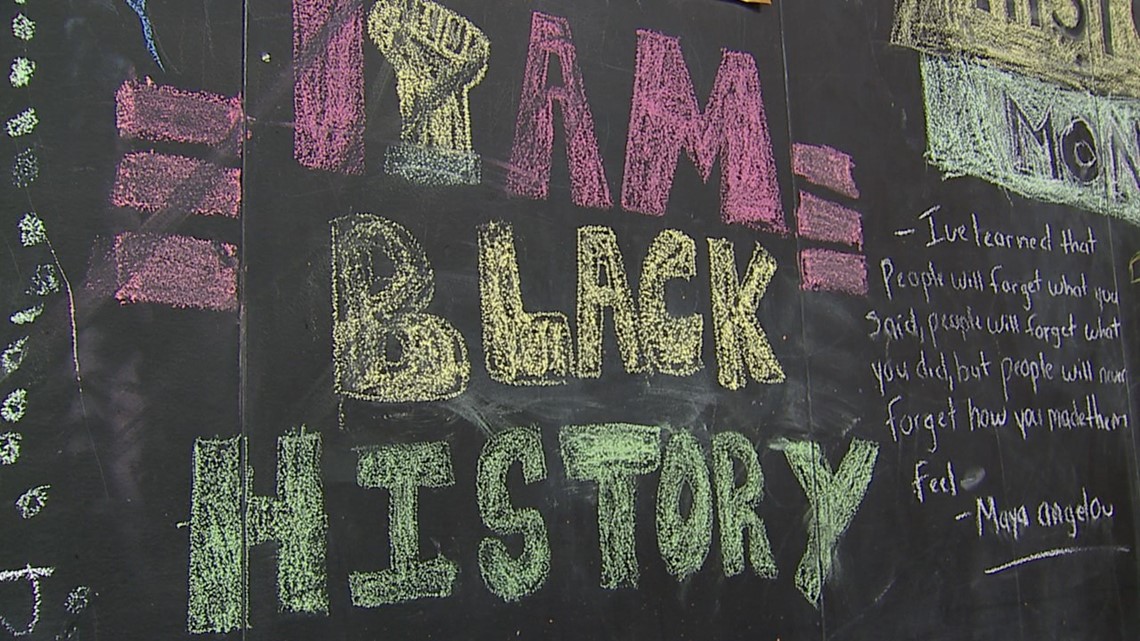 I AM
BLACK
HISTORY
MON
- I've learned that
People will forget what you
said, people will forget what
you did, but people will never
forget how you made them
feel
- Maya angelou